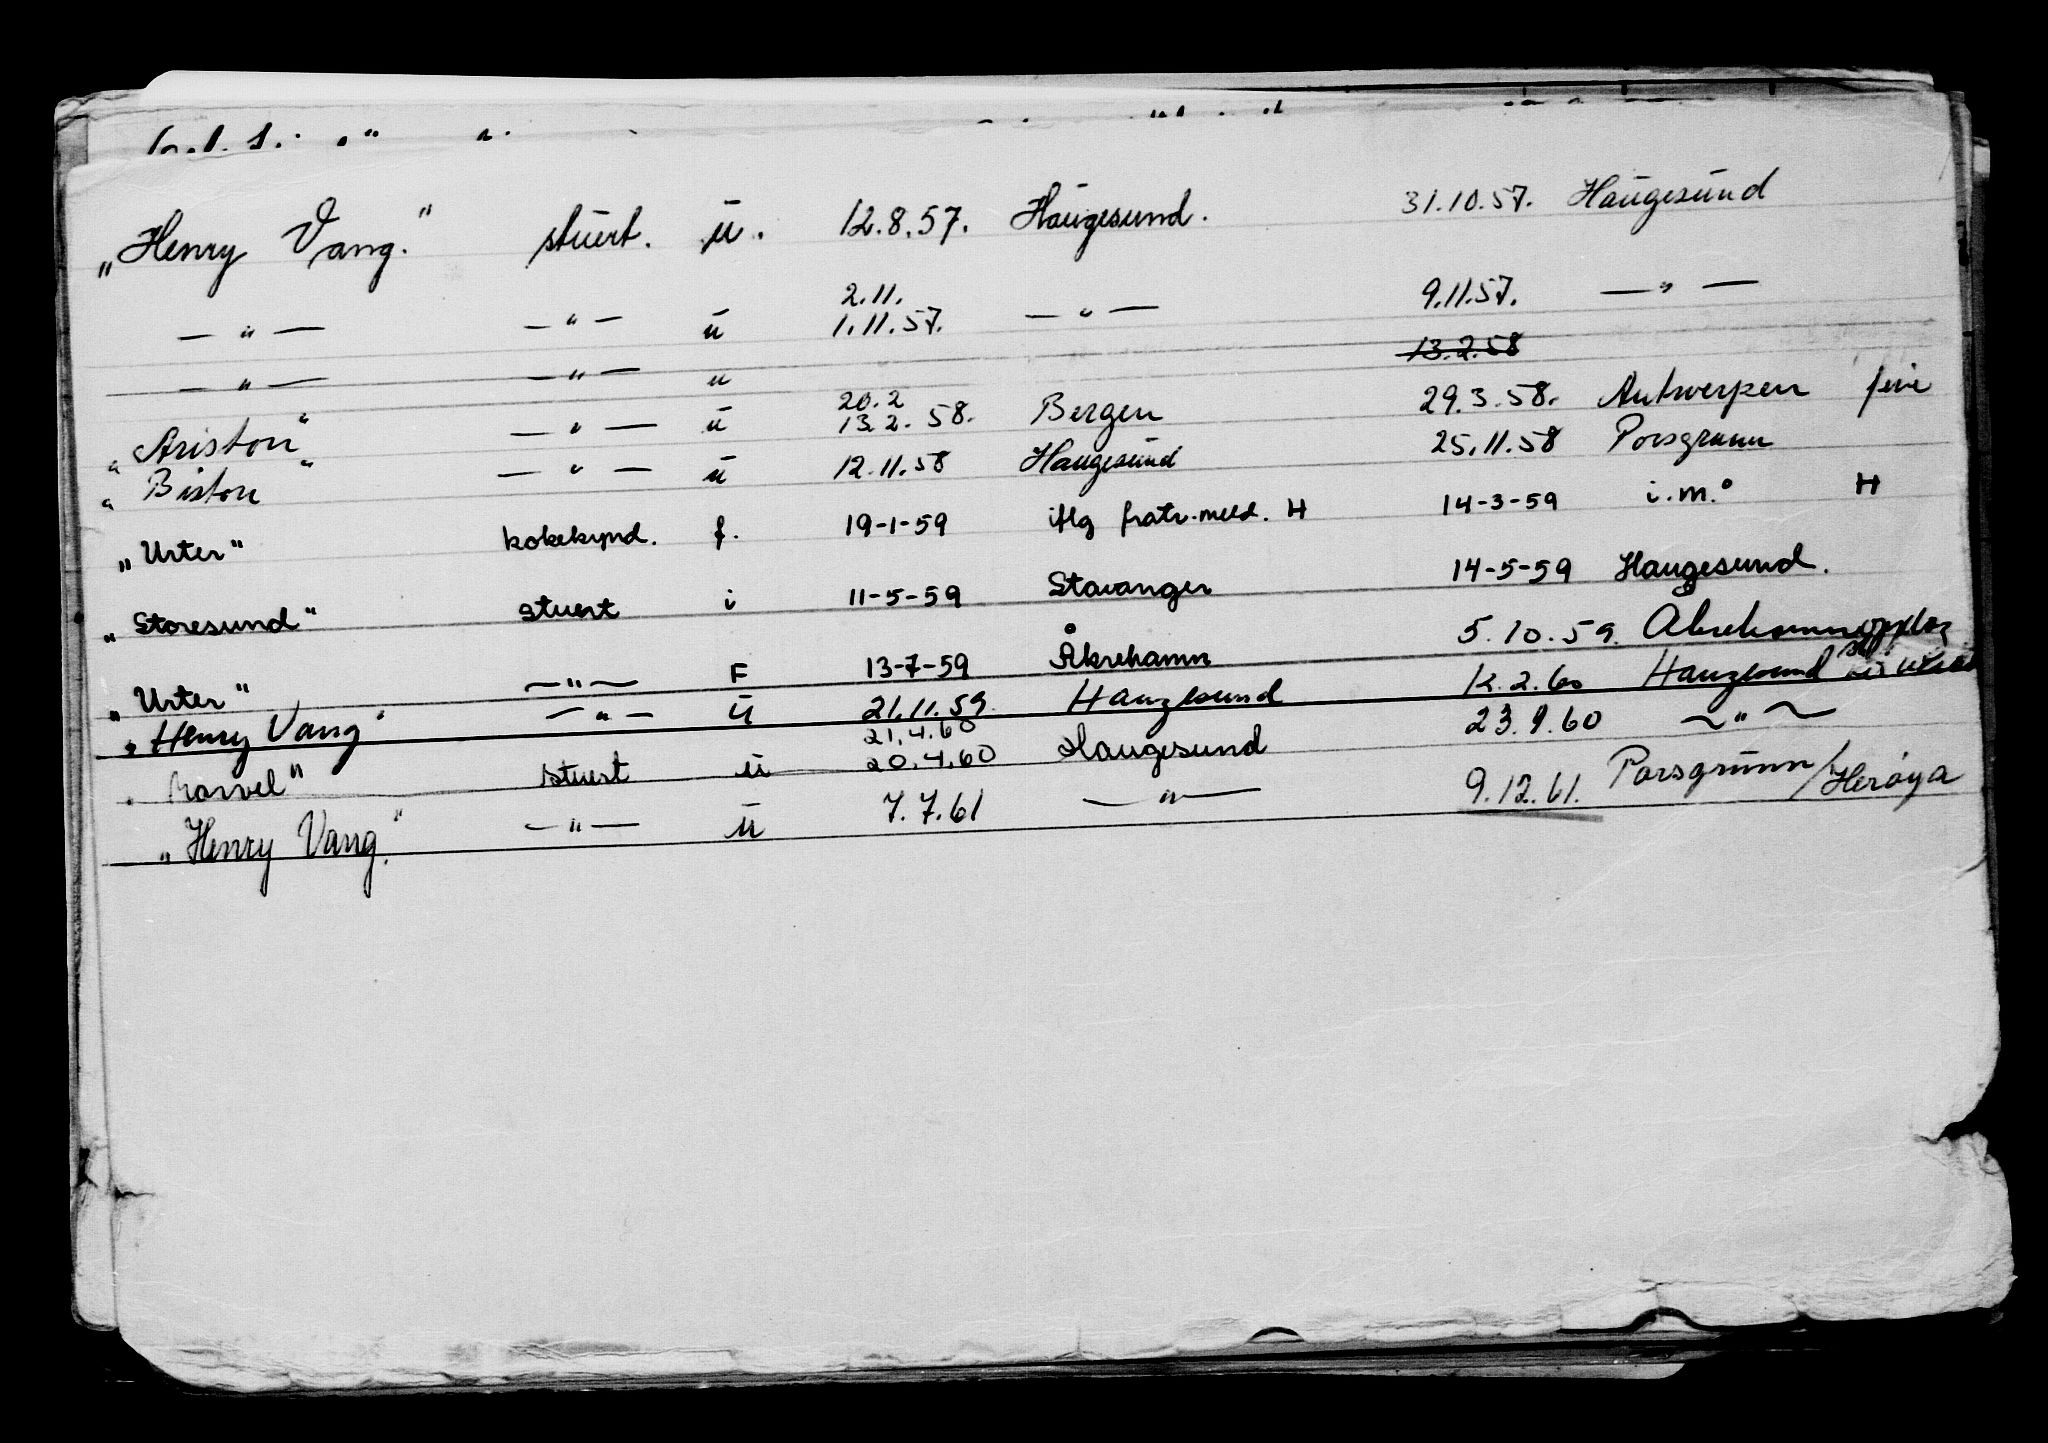 „Henry Vang." stuert. u. 12.8.57. Haugesund. 31.10.57. Haugesund
— " — — " — u 2.11. 1.11.57. — " — 9.11.57. — " —
— " — — " — u 13.2.58
„Ariston" — " — u 20.2 13.2.58. Bergen 29.3.58. Antwerpen ferie
„Biston" — " — u 12.11.58 Haugesund 25.11.58 Porsgrunn
„Urter" kokekynd. f. 19-1-59 iflg fratr.meld. H 14-3-59 i.m.° H
„Storesund" stuert i 11-5-59 Stavanger 14-5-59 Haugesund.
„Urter" — " — F 13-7-59 Åkrehamn 5.10.59. Akrehamn opplag
„Henry Vang" — " — u 21.11.59. Haugesund 12.2.60 Haugesund
„Marvel" stuert u 21.4.60 20.4.60 Haugesund 23.9.60 — " —
„Henry Vang." — " — u 7.7.61 — " — 9.12.61. Porsgrunn/Herøya